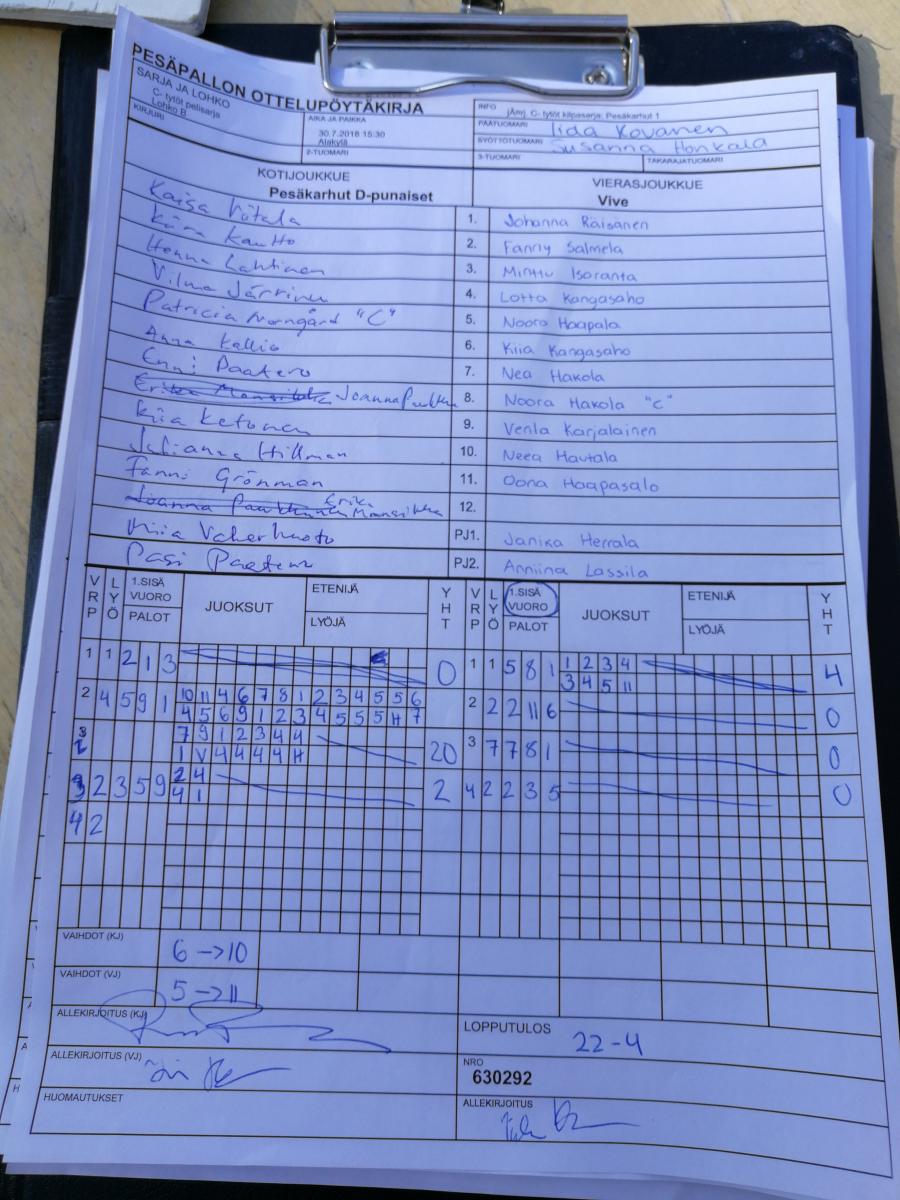 PESÄPALLON OTTELUPÖYTÄKIRJA
SARJA JA LOHKO
C- tytöt pelisarja
Lohko B
KIRJURI
AIKA JA PAIKKA
30.7.2018 15:30
Alakylä
2-TUOMARI
INFO
jÄrnj. C- tytöt kilpasarja: Pesäkarhut 1
PÄÄTUOMARI Iida Kovanen
SYÖTTÖTUOMARI Susanna Honkala
3-TUOMARI TAKARAJATUOMARI
KOTIJOUKKUE
Pesäkarhut D-punaiset
VIERASJOUKKUE
Vive
Kaisa 1. Johanna Räisänen
Kautto 2. Fanny Salmela
Henna Lahtinen 3. Minttu Isoranta
Vilma Järvinen 4. Lotta Kangasaho
Patricia Norrgård "C" 5. Noora Haapala
Anna Kallio 6. Kiia Kangasaho
Enni Paatero 7. Nea Hakola
Joanna 8. Noora Hakola "C"
Kiia Ketonen 9. Venla Karjalainen
Julianna Hillman 10. Neea Hautala
Fanni Grönman 11. Oona Haapasalo
Erika Mansikka 12.
PJ1. Janika Herrala
Pasi Paatero PJ2. Anniina Lassila
VRP LYÖ 1.SISÄ VUORO PALOT JUOKSUT ETENIJÄ LYÖJÄ YHT VRP LYÖ 1.SISÄ VUORO PALOT JUOKSUT ETENIJÄ LYÖJÄ YHT
1 1 2 1 3 0 1 1 5 8 1 1 2 3 4 4
3 4 5 11
2 4 5 9 1 10 11 4 6 7 8 1 2 3 4 5 5 6 2 2 2 11 6 0
4 5 6 9 1 2 3 4 5 5 5 H 7
7 9 1 2 3 4 4 20 3 7 7 8 1 0
1 V 4 4 4 4 H
3 2 3 5 9 2 4 2 4 2 2 3 5 0
4 1
4 2
VAIHDOT (KJ) 6 → 10
VAIHDOT (VJ) 5 → 11
ALLEKIRJOITUS (KJ)
LOPPUTULOS 22 - 4
ALLEKIRJOITUS (VJ)
NRO
630292
HUOMAUTUKSET
ALLEKIRJOITUS